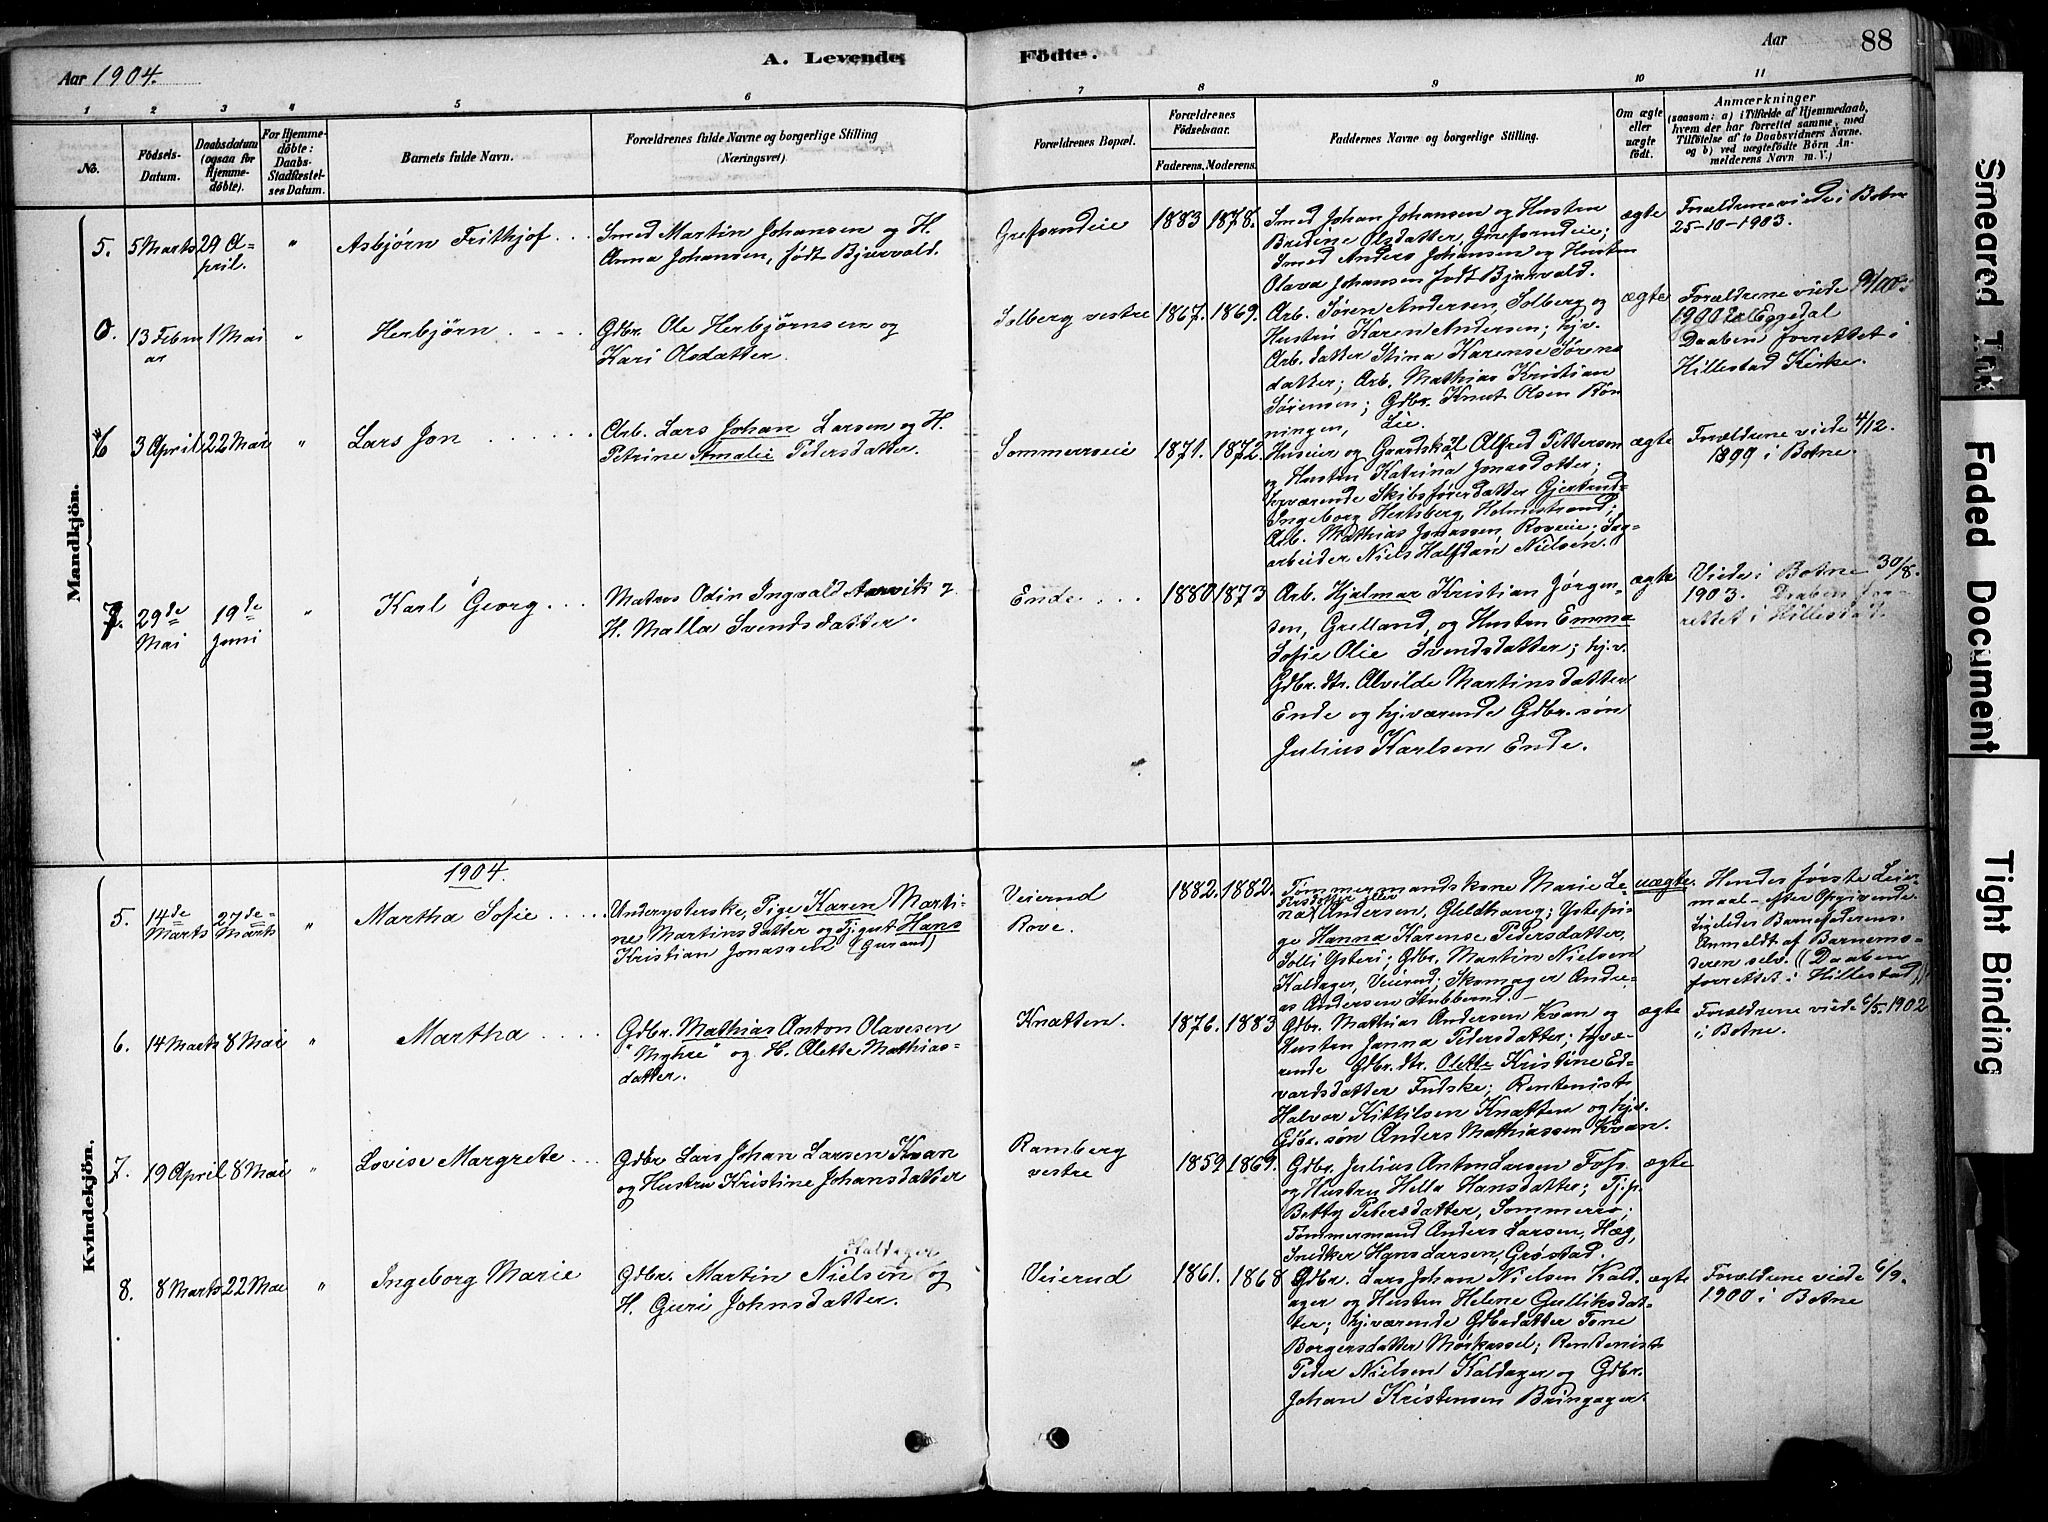 Aar 1904.
A. Levende
Födte.
Aar
88
1 2 3 4 5 6 7 8 9 10 11
No.
Födsels-
Datum.
Daabsdatum
(ogsaa for
Hjemme-
döbte).
For Hjemme-
döbte:
Daabs-
Stadfæstel-
ses Datum.
Barnets fulde Navn.
Forældrenes fulde Navne og borgerlige Stilling
(Næringsvei).
Forældrenes Bopæl.
Forældrenes
Födselsaar.
Faderens. Moderens.
Faddernes Navne og borgerlige Stilling.
Om ægte
eller
uægte
födt.
Anmærkninger
(saasom: a) i Tilfælde af Hjemmedaab,
hvem der har forrettet samme, med
Tilföielse af to Daabsvidners Navne.
og b) ved uægtefödte Börn An-
melderens Navn m. V.)
Mandkjön.
5. 5 Marts 29 A-
pril.
"
Asbjørn Frithjof . . .
Smed Martin Johansen og H.
Anna Johansen, født Bjervald.
1883 1878.
Smed Johan Johansen og Hustru
Bredine Olsdatter,
Smed Anders Johansen og Hustru
Olava Johansen født Bjervald.
ægte
Forældrene viede i Botne
25-10-1903.
6. 13 Febru
ar
1 Mai
"
Herbjørn . . . .
Gdbr. Ole Herbjørnsen og
Kari Olsdatter.
Solberg vestre
1867. 1869.
Arb. Søren Andersen, Solberg og
Hustru Karen Andersen; hjv.
Arb. datter Stina Karense Sørens
datter; Arb. Mathias Kristian
Sørensen; Gdbr. Knut Olsen Røn
ningen, Lie.
ægte
Forældrene viede
1900 i Eggedal
Daaben forrettet i
Hillestad Kirke.
6 3 April 22 Mai
"
Lars Jon . . . . . .
Arb. Lars Johan Larsen og H.
Petrine Amalie Pedersdatter.
Sommerroeie
1871. 1872.
Huseier og Gaardskal Alfred Pettersen
og Hustru Katrina Jonasdatter;
hjværende Skibsførerdatter Gjertrud-
Ingeborg Hertsberg, Holmestrand;
Arb. Mathias Jonassen, Roveeie; Sag-
arbeider Niels Halfdan Nielsen.
ægte
Forældrene viede 4/12.
1899 i Botne.
7. 29de
Mai
19de
Juni
"
Karl Georg . . .
Matros Odin Ingvald Aarvik og
H. Malla Svendsdatter.
Ende . . .
1880 1873
Arb. Hjalmar Kristian Jørgen-
sen, Grelland, og Hustru Emma
Sofie Olie Svendsdatter; hj.v.
Gdbr. dtr. Alvilde Martinsdatter
Ende og hjværende Gdbr. søn
Julius Karlsen Ende.
ægte
Viede i Botne 30/8.
1903. Daaben for-
rettet i Hillestad.
Kvindekjön.
1904.
5. 14de
Marts
27de
Marts
"
Martha Sofie . . . .
Underysterske, Pige Karen Marti-
ne Martinsdatter og Tjgut Hans
Kristian Jonassen (Gurand)
Veierud
Rove.
1882. 1882.
Tømmermandskone Marie Le-
na Andersen, Gleldhaug; Ystepi-
ge Hanna Karense Pedersdatter,
Solli Ysteri; Gdbr. Martin Nielsen
Kaldager, Veierud; Skomager Andre-
as Andersen Stubberud.
uægte.
Hendes første Leier-
maal - efter Opgivende.
Ligeledes Barnefaderens.
Anmeldt af Barnemo-
deren selv. (Daaben
forrettet i Hillestad.)
6. 14 Marts 8 Mai
"
Martha . . . .
Gdbr. Mathias Anton Olavesen
"Myhre" og H. Olette Mathias-
datter.
Knatten.
1876. 1883
Gdbr. Mathias Andersen Kvan og
Hustru Janna Pedersdatter; hjvæ-
rende Gdbr. dtr. Olette Kristine Ed-
vardsdatter Fudske; Rentenist
Halvor Kittilsen Knatten og hj.v.
Gdbr. søn Anders Mathiassen Kvan.
ægte
Forældrene viede 6/5.1902
i Botne.
7. 19 April 8 Mai
"
Lovise Margrete . . .
Gdbr Lars Johan Larsen Kvan
og Hustru Kristine Johansdatter
Ramberg
vestre
1859 1869.
Gdbr. Julius Anton Larsen Foss
og Hustru Hella Hansdatter; Tj.p.
Betty Petersdatter, Sommerro;
Tømmermand Anders Larsen, Hæg,
Snedker Hans Larsen, Grøstad.
ægte
8. 8 Marts 22 Mai
"
Ingeborg Marie
Kaldager
Gdbr. Martin Nielsen og
H. Guri Johnsdatter.
Veierud
1861. 1868
Gdbr. Lars Johan Nielsen Kald-
ager og Hustru Helene Gulliksdat-
ter; hjværende Gdbrdatter Tone
Borgersdatter Mørkassel; Rentenist
Peder Nielsen Kaldager og Gdbr.
Johan Kristensen Bringager.
ægte
Forældrene viede 6/9.
1900 i Botne
Smeared Ink
Faded Document
Tight Binding